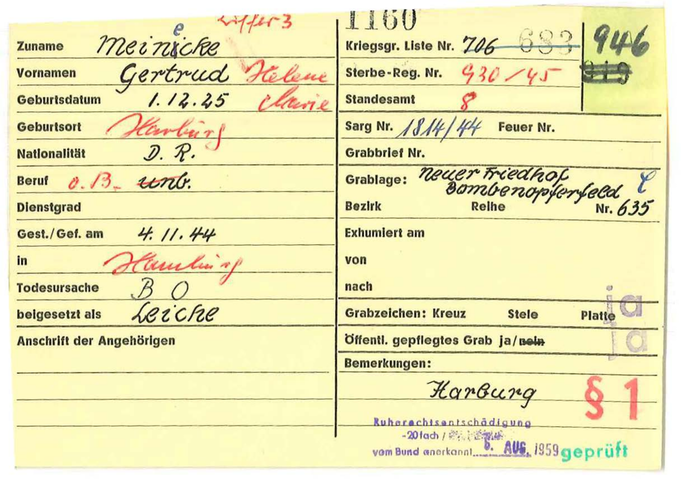 Ziffer 3
1160
Zuname Meinicke
e
Kriegsgr. Liste Nr. 706 683
946
Vornamen Gertrud Helene
Sterbe-Reg. Nr. 930/45
919
Geburtsdatum 1.12.25 Marie
Standesamt 8
Geburtsort Harburg
Sarg Nr. 1814/44 Feuer Nr.
Nationalität D. R.
Grabbrief Nr.
Beruf o. B. unb.
Grablage: Neuer Friedhof
Bombenopferfeld
Dienstgrad
Bezirk Reihe Nr. 635
Gest./Gef. am 4.11.44
Exhumiert am
in Hamburg
von
Todesursache B O
nach
beigesetzt als Leiche
Grabzeichen: Kreuz Stele Platte
ja
Anschrift der Angehörigen
Öffentl. gepflegtes Grab ja/nein
ja
Bemerkungen:
Harburg
§ 1
Ruherechtsentschädigung
-20fach /
vom Bund anerkannt 6. AUG. 1959 geprüft